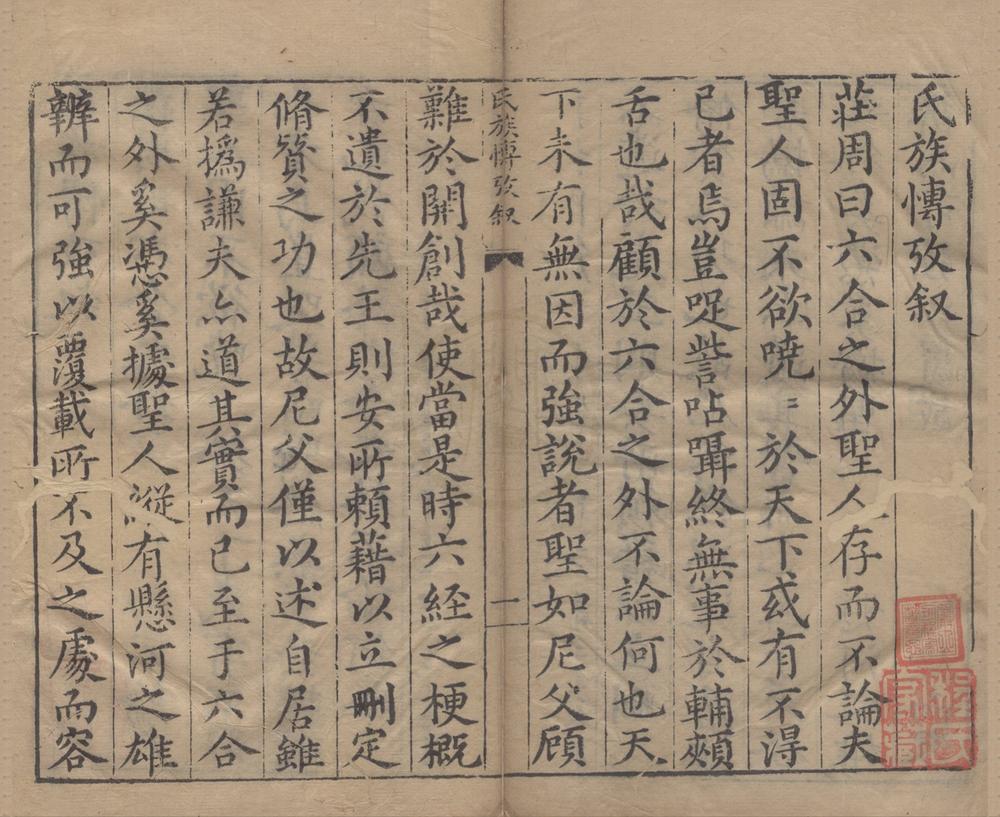 氏族慱攷叙
莊周曰六合之外聖人存而不論夫
聖人固不欲嘵〻於天下或有不得
已者焉豈哫訾呫囁終無事於輔頰
舌也哉顧於六合之外不論何也天
下未有無因而強說者聖如尼父顧
氏族慱攷叙
一
難於開創哉使當是時六經之梗概
不遺於先王則安所頼藉以立刪定
脩贊之功也故尼父僅以述自居雖
若撝謙夫亦道其實而已至于六合
之外奚憑奚據聖人縱有懸河之雄
辨而可強以覆載所不及之處而容